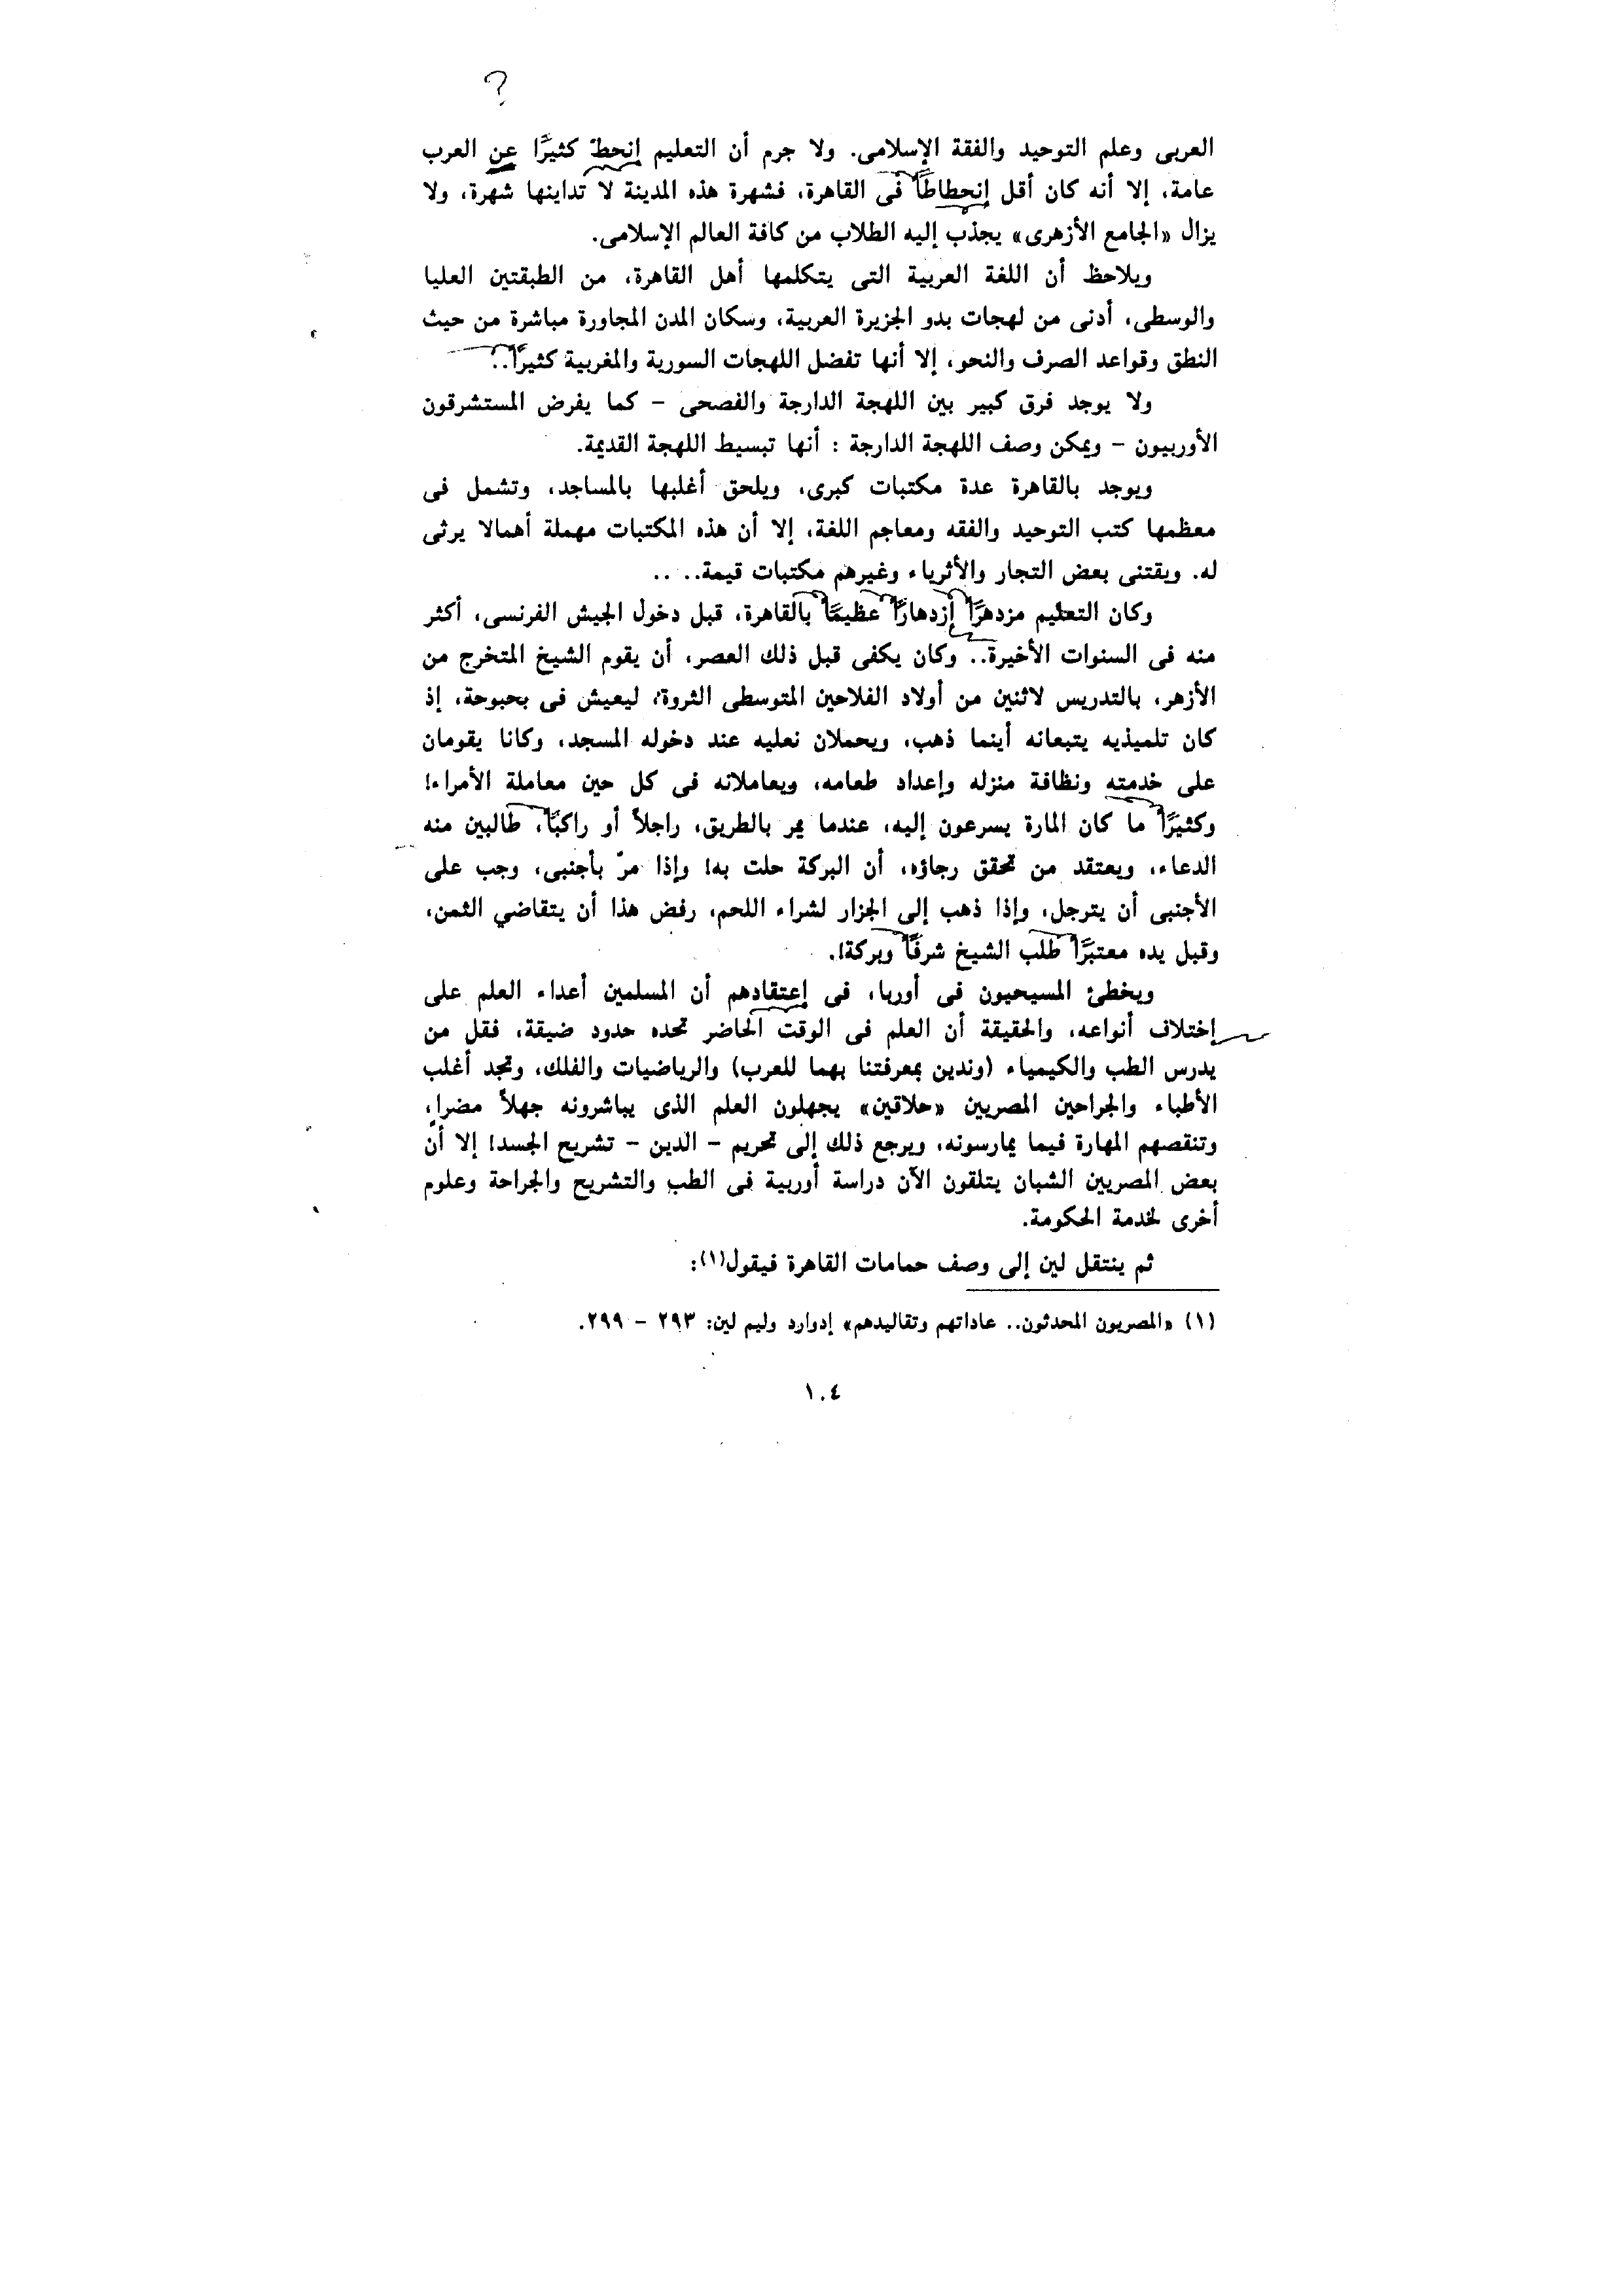 ?
العربى وعلم التوحيد والفقة الإسلامى. ولا جرم أن التعليم إنحطّ كثيرًا عن العرب
عامة، إلا أنه كان أقل إنحطاطًا فى القاهرة، فشهرة هذه المدينة لا تداينها شهرة، ولا
يزال «الجامع الأزهرى» يجذب إليه الطلاب من كافة العالم الإسلامى.
ويلاحظ أن اللغة العربية التى يتكلمها أهل القاهرة، من الطبقتين العليا
والوسطى، أدنى من لهجات بدو الجزيرة العربية، وسكان المدن المجاورة مباشرة من حيث
النطق وقواعد الصرف والنحو، إلا أنها تفضل اللهجات السورية والمغربية كثيرًا..
ولا يوجد فرق كبير بين اللهجة الدارجة والفصحى – كما يفرض المستشرقون
الأوربيون – ويمكن وصف اللهجة الدارجة : أنها تبسيط اللهجة القديمة.
ويوجد بالقاهرة عدة مكتبات كبرى، ويلحق أغلبها بالمساجد، وتشمل فى
معظمها كتب التوحيد والفقه ومعاجم اللغة، إلا أن هذه المكتبات مهملة أهمالا يرثى
له. ويقتنى بعض التجار والأثرياء وغيرهم مكتبات قيمة.. ..
وكان التعليم مزدهرًا إزدهارًا عظيمًا بالقاهرة، قبل دخول الجيش الفرنسى، أكثر
منه فى السنوات الأخيرة.. وكان يكفى قبل ذلك العصر، أن يقوم الشيخ المتخرج من
الأزهر، بالتدريس لاثنين من أولاد الفلاحين المتوسطى الثروة، ليعيش فى بحبوحة، إذ
كان تلميذيه يتبعانه أينما ذهب، ويحملان نعليه عند دخوله المسجد، وكانا يقومان
على خدمته ونظافة منزله وإعداد طعامه، ويعاملانه فى كل حين معاملة الأمراء!
وكثيرًا ما كان المارة يسرعون إليه، عندما يمر بالطريق، راجلاً أو راكبًا، طالبين منه
الدعاء، ويعتقد من تحقق رجاؤه، أن البركة حلت به! وإذا مرّ بأجنبى، وجب على
الأجنبى أن يترجل، وإذا ذهب إلى الجزار لشراء اللحم، رفض هذا أن يتقاضي الثمن،
وقبل يده معتبرًا طلب الشيخ شرفًا وبركة!.
ويخطئ المسيحيون فى أوربا، فى إعتقادهم أن المسلمين أعداء العلم على
إختلاف أنواعه، والحقيقة أن العلم فى الوقت الحاضر تحده حدود ضيقة، فقل من
يدرس الطب والكيمياء (وندين بمعرفتنا بهما للعرب) والرياضيات والفلك، وتجد أغلب
الأطباء والجراحين المصريين «حلاقين» يجهلون العلم الذى يباشرونه جهلاً مضرا،
وتنقصهم المهارة فيما يمارسونه، ويرجع ذلك إلى تحريم – الدين – تشريح الجسد! إلا أنّ
بعض المصريين الشبان يتلقون الآن دراسة أوربية فى الطب والتشريح والجراحة وعلوم
أخرى لخدمة الحكومة.
ثم ينتقل لين إلى وصف حمامات القاهرة فيقول(١):
(١) «المصريون المحدثون.. عاداتهم وتقاليدهم» إدوارد وليم لين: ٢٩٣ – ٢٩٩.
١٠٤